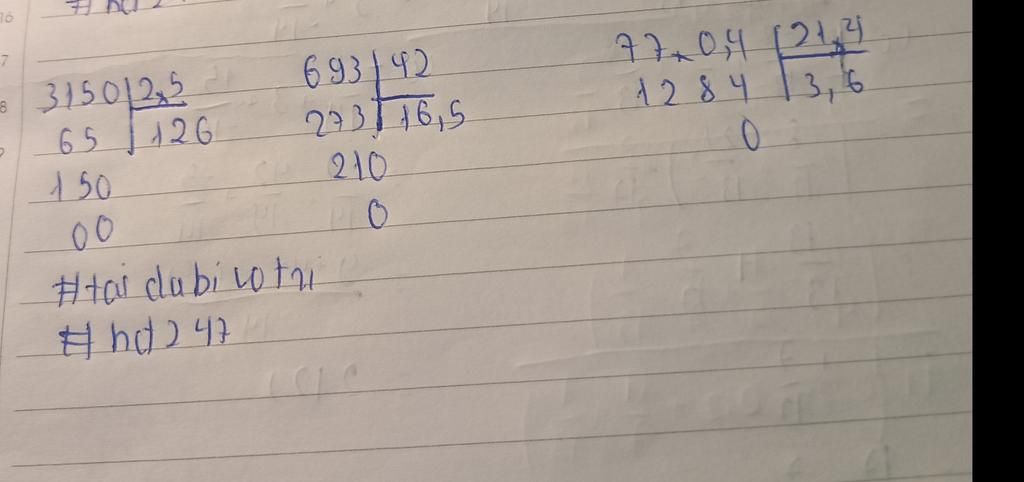 # hd 2
3150 2,5
65 126
150
00
693 42
273 16,5
210
0
77,0,4 21,4
1284 3,6
0
#tai dabi votri
# hd 247